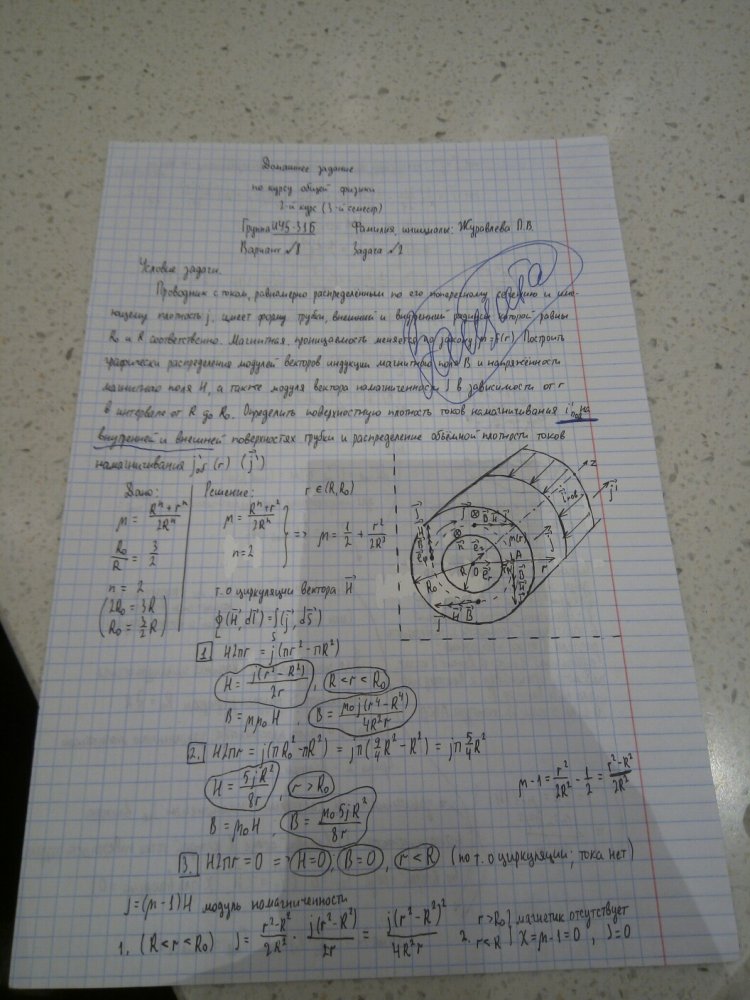 Домашнее задание
по курсу общей физики
2-й курс (3-й семестр)
Группа ИУ5-31Б Фамилия, инициалы: Журавлева П.В.
Вариант №8 Задача №2
Условие задачи.
Проводник с током, равномерно распределённым по его поперечному сечению и име-
ющему плотность j, имеет форму трубки, внешний и внутренний радиусы которой равны
R₀ и R соответственно. Магнитная проницаемость меняется по закону μ=f(r). Построить
графически распределения модулей векторов индукции магнитного поля B и напряжённости
магнитного поля H, а также модуля вектора намагниченности J в зависимости от r
в интервале от R до R₀. Определить поверхностную плотность токов намагничивания i'пов на
внутренней и внешней поверхностях трубки и распределение объёмной плотности токов
намагничивания j'об (r) (j⃗')
Дано: Решение: r ∈ (R, R₀)
μ = (Rⁿ + rⁿ)/2Rⁿ
R₀/R = 3/2
n = 2
(2R₀ = 3R
R₀ = 3/2 R)
μ = (Rⁿ + r²)/2Rⁿ
n = 2 } => μ = 1/2 + r²/2R²
т. о циркуляции вектора H⃗
∮(H⃗, dl⃗) = ∫(j⃗, dS⃗)
L S
1. H2πr = j(πr² - πR²)
H = j(r² - R²)/2r , R < r < R₀
B = μμ₀H , B = μ₀j(r⁴ - R⁴)/4R²r
2. H2πr = j(πR₀² - πR²) = jπ(9/4 R² - R²) = jπ 5/4 R²
H = 5jR²/8r , r > R₀
μ - 1 = r²/2R² - 1/2 = (r² - R²)/2R²
B = μ₀H , B = μ₀5jR²/8r
3. H2πr = 0 => H = 0 , B = 0 , r < R (по т. о циркуляции; тока нет)
J = (μ - 1)H модуль номагниченности
1. (R < r < R₀) J = (r² - R²)/2R² · j(r² - R²)/2r = j(r² - R²)²/4R²r
2. r > R₀ r < R } магнетик отсутствует χ = μ - 1 = 0 , J = 0